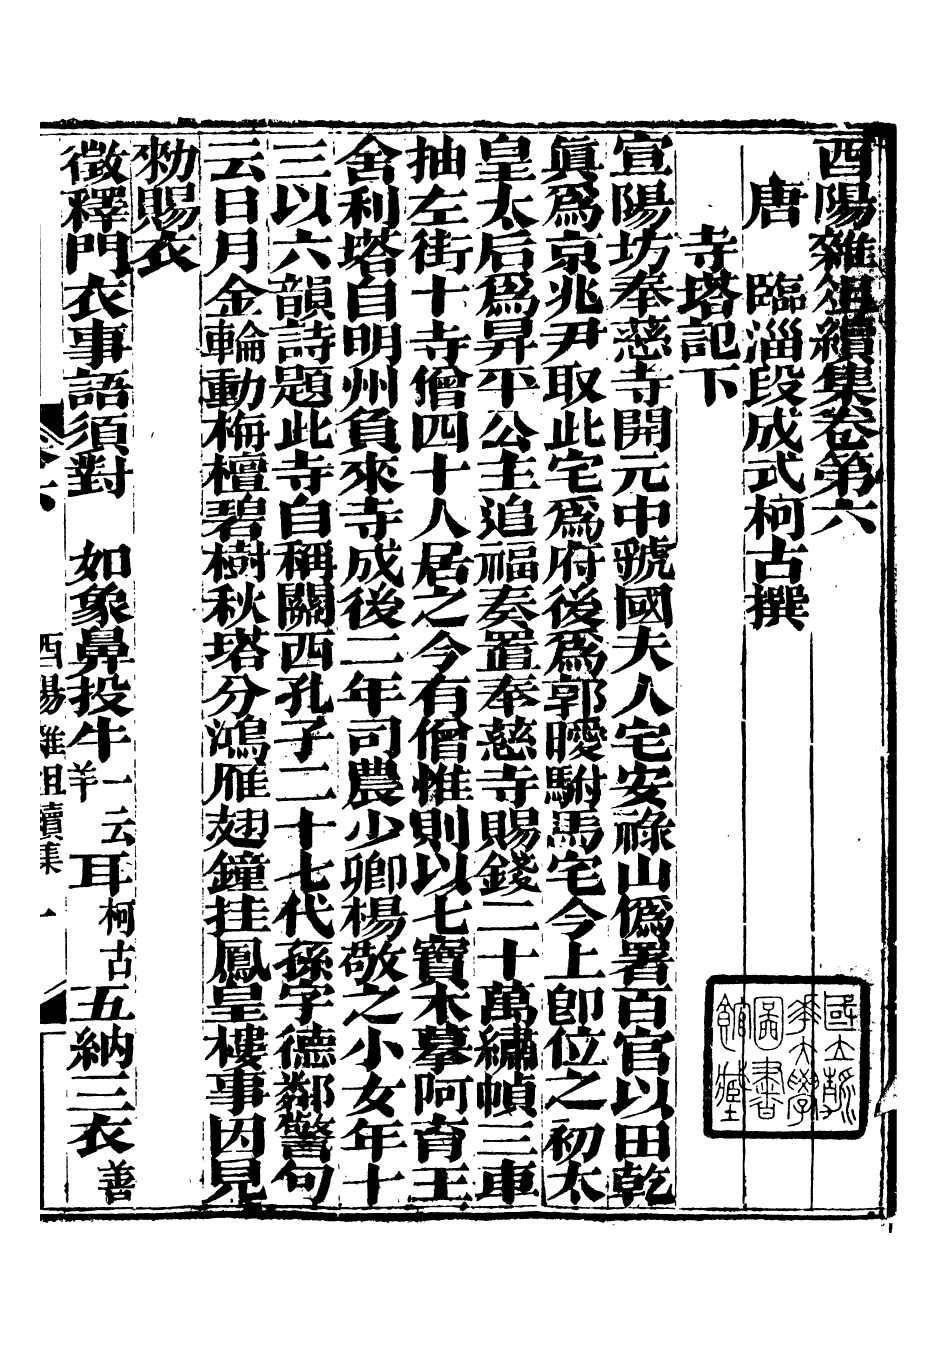 酉陽雜俎續集卷第六
唐　臨淄段成式柯古撰
寺塔記下
宣陽坊奉慈寺開元中虢國夫人宅安祿山僞署百官以田乾
眞爲京兆尹取此宅爲府後爲郭曖駙馬宅今上卽位之初太
皇太后爲昇平公主追福奏置奉慈寺賜錢二十萬繡幀三車
抽左街十寺僧四十人居之今有僧惟則以七寶木摹阿育王
舍利塔自明州負來寺成後二年司農少卿楊敬之小女年十
三以六韻詩題此寺自稱關西孔子二十七代孫字德鄰警句
云日月金輪動栴檀碧樹秋塔分鴻雁翅鐘挂鳳皇樓事因見
勑賜衣
徵釋門衣事語須對　如象鼻投牛一云羊耳柯古五納三衣善
酉陽雜俎續集　一
國立清華大學圖書館藏